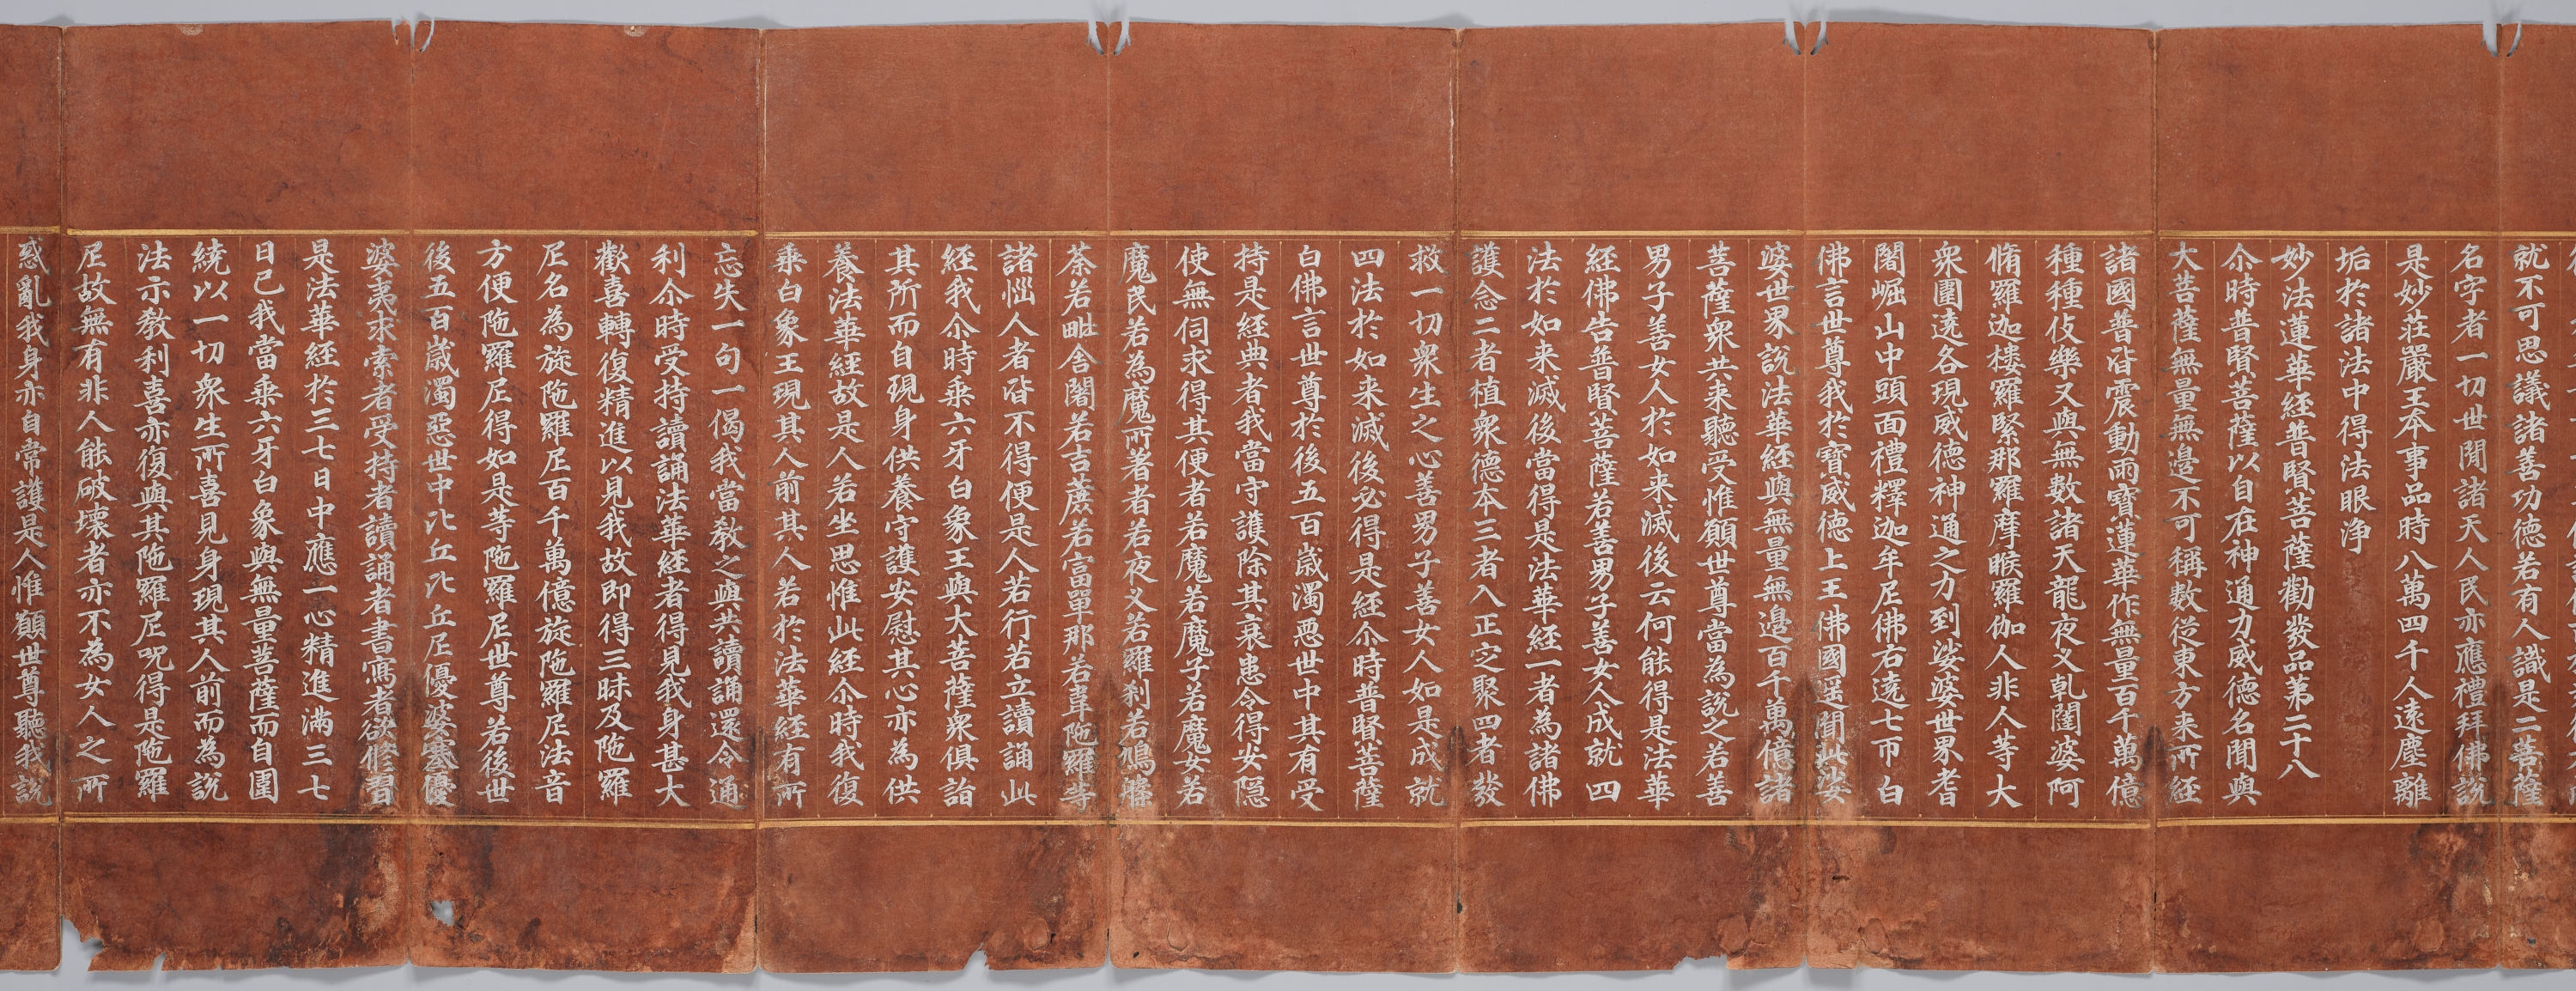 就不可思議諸善功德若有人識是二菩薩
名字者一切世間諸天人民亦應禮拜佛說
是妙莊嚴王本事品時八萬四千人遠塵離
垢於諸法中得法眼净
妙法蓮華經普賢菩薩勸發品第二十八
尒時普賢菩薩以自在神通力威德名聞與
大菩薩無量無邊不可稱數從東方来所經
諸國普皆震動雨寶蓮華作無量百千萬億
種種伎樂又與無數諸天龍夜叉乹闥婆阿
脩羅迦樓羅緊那羅摩睺羅伽人非人等大
衆圍遶各現威德神通之力到娑婆世界耆
闍崛山中頭面禮釋迦牟尼佛右遶七帀白
佛言世尊我於寶威德上王佛國遥聞此娑
婆世界說法華經與無量無邊百千萬億諸
菩薩衆共来聽受惟願世尊當為說之若善
男子善女人於如来滅後云何能得是法華
經佛告普賢菩薩若善男子善女人成就四
法於如来滅後當得是法華經一者為諸佛
護念二者植衆德本三者入正定聚四者發
救一切衆生之心善男子善女人如是成就
四法於如来滅後必得是經尒時普賢菩薩
白佛言世尊於後五百歲濁惡世中其有受
持是經典者我當守護除其衰患令得安隱
使無伺求得其便者若魔若魔子若魔女若
魔民若為魔所著者若夜叉若羅刹若鳩槃
荼若毗舍闍若吉蔗若富單那若韋陁羅等
諸惱人者皆不得便是人若行若立讀誦此
經我尒時乗六牙白象王與大菩薩衆俱詣
其所而自現身供養守護安慰其心亦為供
養法華經故是人若坐思惟此經尒時我復
乗白象王現其人前其人若於法華經有所
忘失一句一偈我當教之與共讀誦還令通
利尒時受持讀誦法華經者得見我身甚大
歡喜轉復精進以見我故即得三昧及陁羅
尼名為旋陁羅尼百千萬億旋陁羅尼法音
方便陁羅尼得如是等陁羅尼世尊若後世
後五百歲濁惡世中比丘比丘尼優婆塞優
婆夷求索者受持者讀誦者書寫者欲修習
是法華經於三七日中應一心精進滿三七
日已我當乗六牙白象與無量菩薩而自圍
繞以一切衆生所喜見身現其人前而為說
法示教利喜亦復與其陁羅尼呪得是陁羅
尼故無有非人能破壞者亦不為女人之所
惑亂我身亦自常護是人惟願世尊聽我說